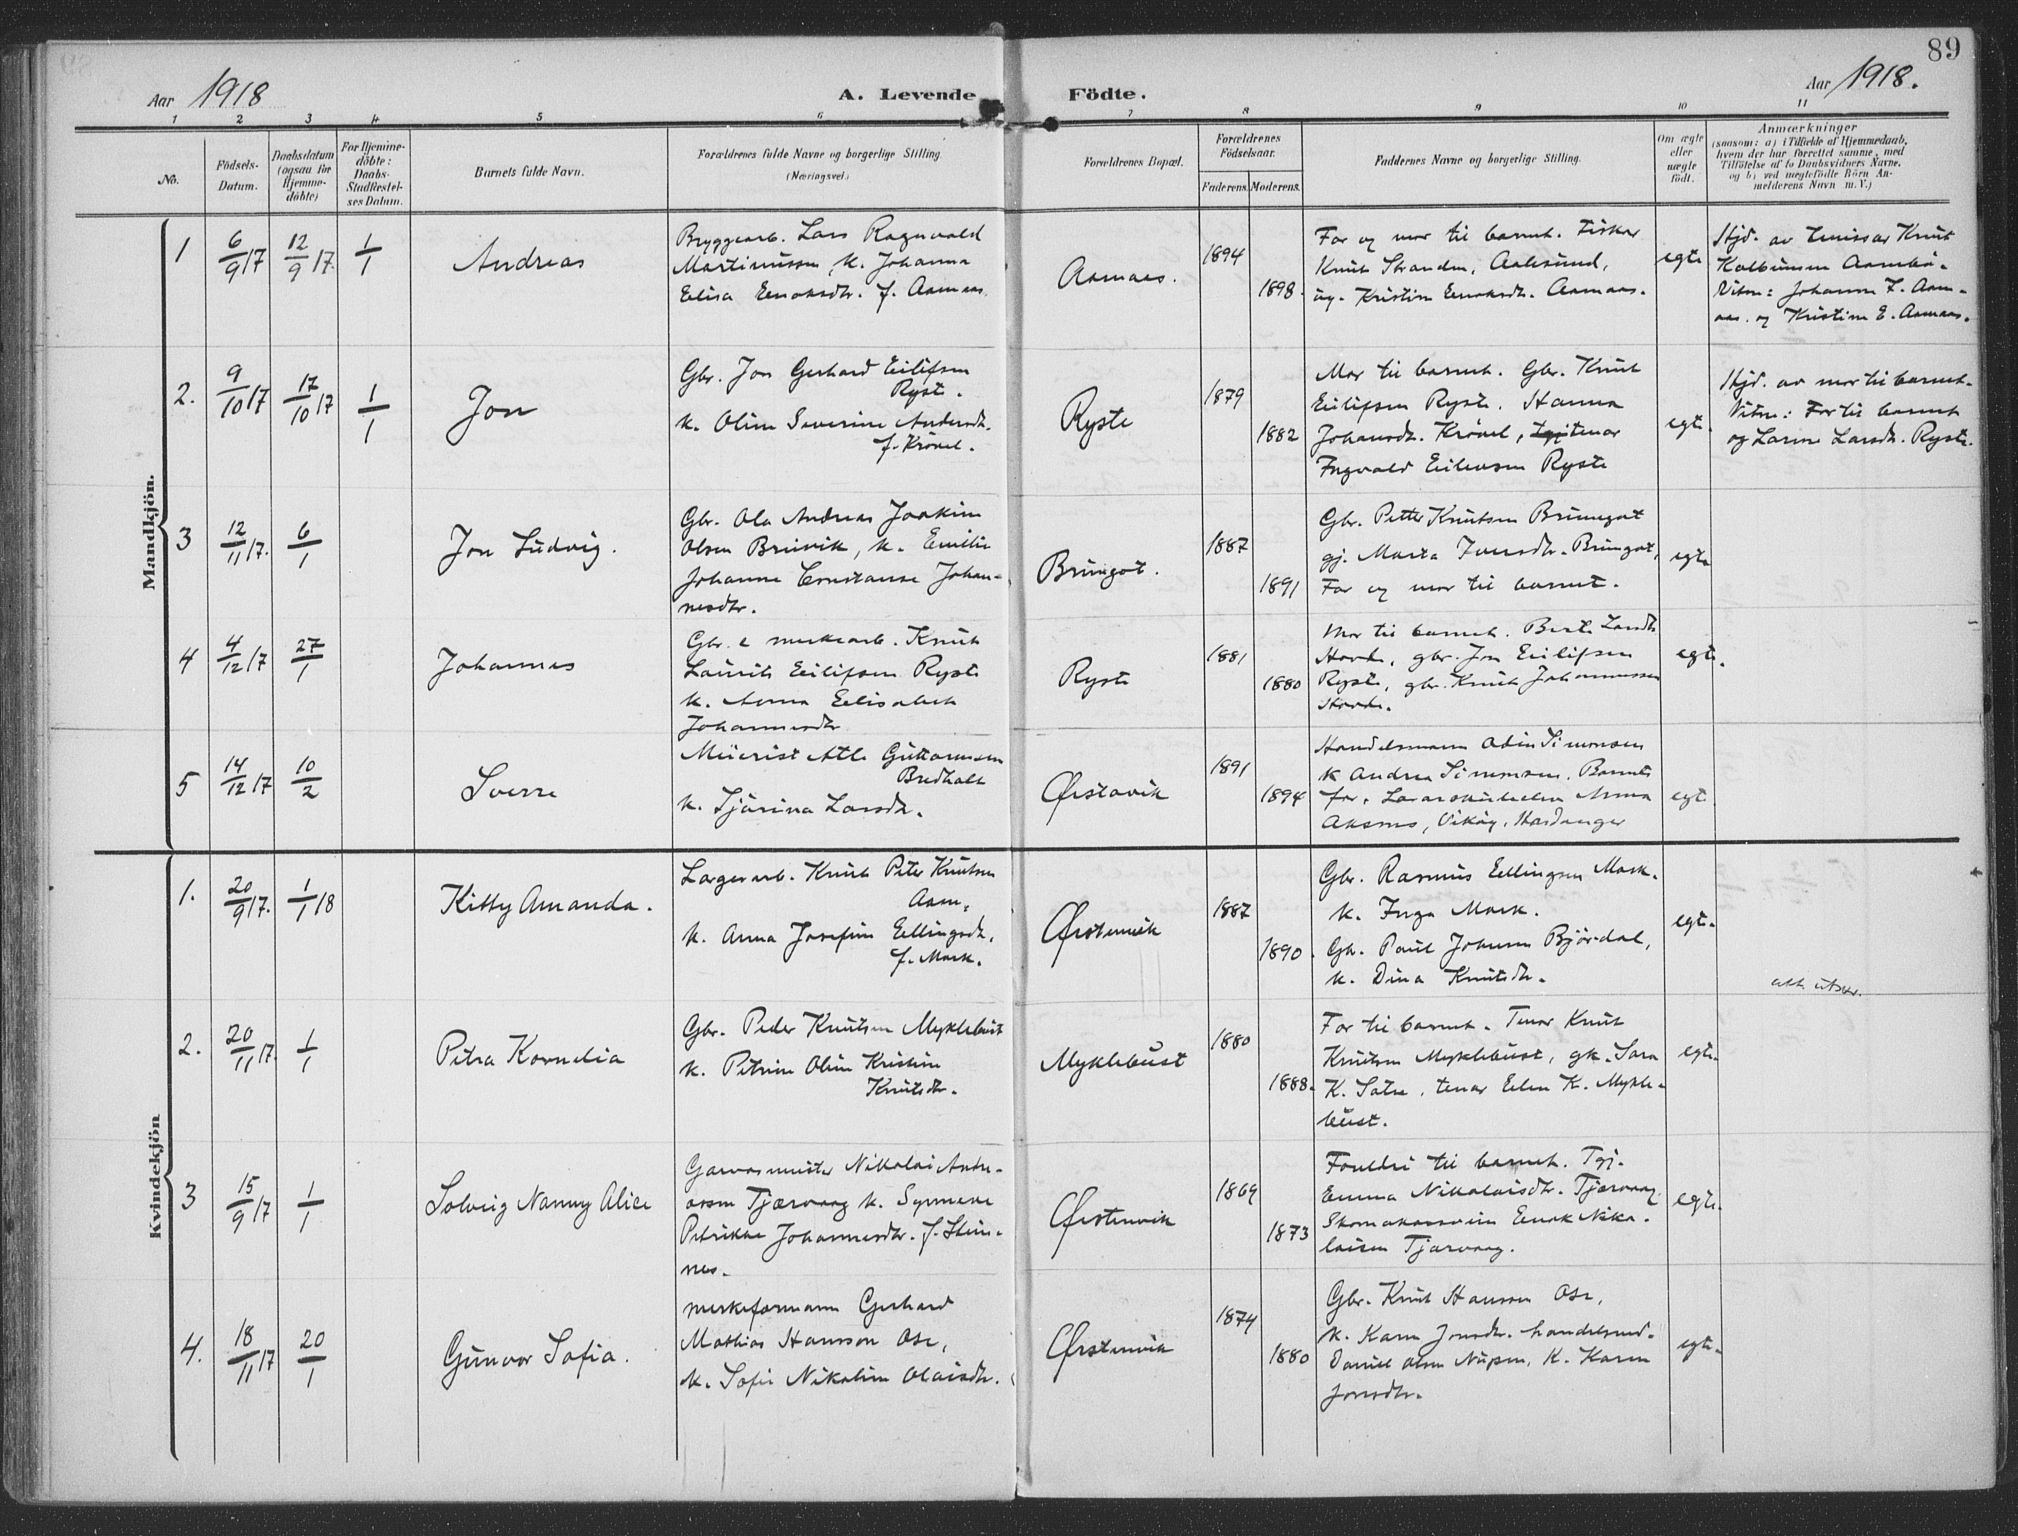 89
Aar 1918
A. Levende
Födte.
Aar 1918.
1 2 3 4 5 6 7 8 9 10 11
No.
Födsels-
Datum.
Daabsdatum
(ogsaa for
Hjemme-
döbte)
For Hjemme-
döbte:
Daabs-
Stadfæstel-
ses Datum.
Barnets fulde Navn.
Forældrenes fulde Navne og borgerlige Stilling
(Næringsvei.)
Forældrenes Bopæl.
Forældrenes
Födselsaar.
Faderens. Moderens.
Faddernes Navne og borgerlige Stilling.
Om ægte
eller
uægte
født.
Anmærkninger
(saasom: a) i Tilfælde af Hjemmedaab,
hvem der har forrettet samme, med
Tilföielse af to Daabsvidners Navne,
og b) ved uægtefödte Börn An-
melderens Navn m. V.)
Mandkjön.
1 6/9 17 12/9 17. 1/1 Andreas
Bryggearb. Lars Ragnvald
Martinussen, k. Johanna
Elisa Enoksdtr. f. Aamaas
Aamaas. 1894 1898.
Far og mor til barnet. Fisker
Knut Stranden, Aalesund,
ug. Kristine Enoksdtr. Aamaas.
egte
Hjd. av Emissær Knut
Kolbeinsen Aambö.
Vitne: Johanne F. Aam-
aas. og Kristine E. Aamaas.
2. 9/10 17 17/10 17 1/1 Jon
Gbr. Jon Gerhard Eilifsen
Ryste.
k. Oline Severine Andersdtr.
f. Krövel.
Ryste 1879 1882
Mor til barnet. Gbr. Knut
Eilifsen Ryste. Hanna
Johansdtr. Krövel, tenar
Ingvald Eilevsen Ryste
egte.
Hjd. av mor til barnet.
Vitne: Far til barnet
og Larine Larsdtr. Ryste.
3 12/11 17. 6/1 Jon Ludvig.
Gbr. Ola Andreas Joakim
Olsen Bruvik, k. Emilie
Johanne Constanse Johan-
nesdtr.
Brungot. 1887 1891
Gbr. Petter Knutsen Brungot
gj. Marta Iversdtr. Brungot,
Far og mor til barnet.
egte
4 4/12 17 27/1 Johannes
Gbr. & meskearb. Knut
Laurits Eilifsen Ryste
k. Anna Elisabet
Johannesdtr
Ryste 1881 1880
Mor til barnet. Berte Larsdtr
Hovde, gbr. Jon Eilifsen
Ryste, gbr. Knut Johannessen
Hovde.
egte.
5 14/12 17 10/2 Sverre
Meierist Atle Guttormsen
Bredholt
k. Tjärina Larsdtr.
Ørstavik 1891 1894
Handelsmann Odin Simonsen
k Andrea Simonsen. Barnets
far, Anna
Aksnes, Vikøy, Hardanger
egte
Kvindekjön
1. 20/9 17. 1/1 18 Kitty Amanda.
Lagerarb. Knut Peter Knutsen
Aam,
k. Anna Josefine Ellingsdtr,
f. Mork.
Ørstenvik 1887 1890.
Gbr. Rasmus Ellingsen Mork.
k. Inga Mork.
Gbr. Paul Johnsen Bjørdal,
k. Dina Knutsdtr.
egte.
att. utskr.
2. 20/11 17. 1/1 Petra Kornelia
Gbr. Peder Knutsen Myklebust
k. Petrine Oline Kristine
Knutsdtr.
Myklebust 1880 1888.
Far til barnet. Tenar Knut
Knutsen Myklebust, gk. Sara
K. Sätre, tenar Elen K. Mykle-
bust.
egte.
3 15/9 17 1/1 Solveig Nanny Alice
Garvarmeister Nikolai Andre-
assen Tjærvaag k. Synneve
Petrikke Johannesdtr. f. Stein-
nes.
Ørstenvik 1869 1873
Foreldri til barnet. Tgj.
Emma Nikolaisdtr. Tjærvaag
Skomakarsvein Enok Niko-
laisen Tjærvaag.
egte.
4. 18/11 17 20/1 Gunvor Sofia.
meskeformann Gerhard
Mathias Hansson Ose,
k. Sofie Nikoline Olaisdtr.
Ørstenvik 1874 1880
Gbr. Knut Hansson Ose,
k. Karen Jonsdtr. handelsmd.
Daniel Olsen Nupen, k. Karen
Jonsdtr.
egte.